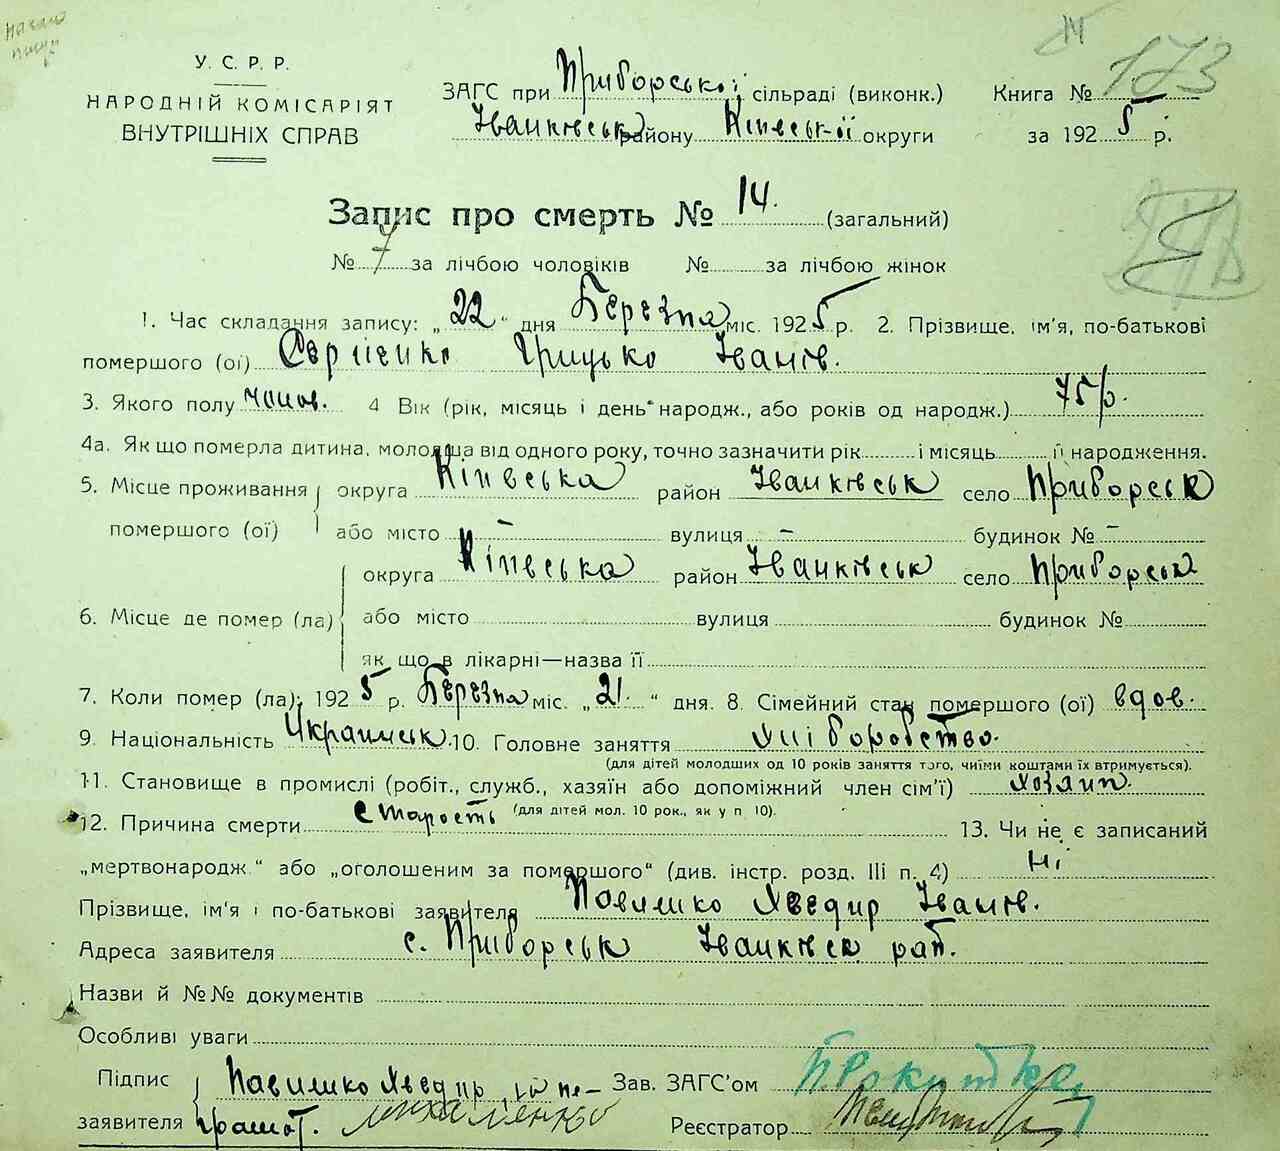 У. С. Р. Р.
НАРОДНІЙ КОМІСАРІЯТ
ВНУТРІШНІХ СПРАВ
ЗАГС при Приборської сільраді (виконк.)
Іванківськ району Київської округи
Книга № 173
за 1925 р.
Запис про смерть № 14. (загальний)
№ 7 за лічбою чоловіків № за лічбою жінок
1. Час складання запису: „22“ дня Березня міс. 1925 р. 2. Прізвище, ім'я, по-батькові
помершого (ої) Сергієнко Грицько Іванів.
3. Якого полу чолов. 4 Вік (рік, місяць і день народж., або років од народж.) 75 р.
4а. Як що померла дитина, молодша від одного року, точно зазначити рік і місяць її народження.
5. Місце проживання округа Київська район Іванківськ село Приборськ
помершого (ої) або місто — вулиця — будинок № —
округа Київська район Іванківськ село Приборськ
6. Місце де помер (ла) або місто вулиця будинок №
як що в лікарні—назва її
7. Коли помер (ла): 1925 р. Березня міс. „21“ дня. 8. Сімейний стан помершого (ої) вдов.
9. Національність Украінськ. 10. Головне заняття хліборобство.
(для дітей молодших од 10 років заняття того, чиїми коштами їх втримується).
11. Становище в промислі (робіт., служб., хазяїн або допоміжний член сім'ї) хозяин.
(для дітей мол. 10 рок., як у п 10).
12. Причина смерти старость 13. Чи не є записаний
„мертвонародж.“ або „оголошеним за помершого“ (див. інстр. розд. III п. 4) Ні
Прізвище, ім'я і по-батькові заявителя Павленко Хведир Іванів.
Адреса заявителя с. Приборськ Іванківск рай.
Назви й №№ документів
Особливі уваги
Підпис Хведир не-
заявителя грамот.
Зав. ЗАГС'ом
Реєстратор